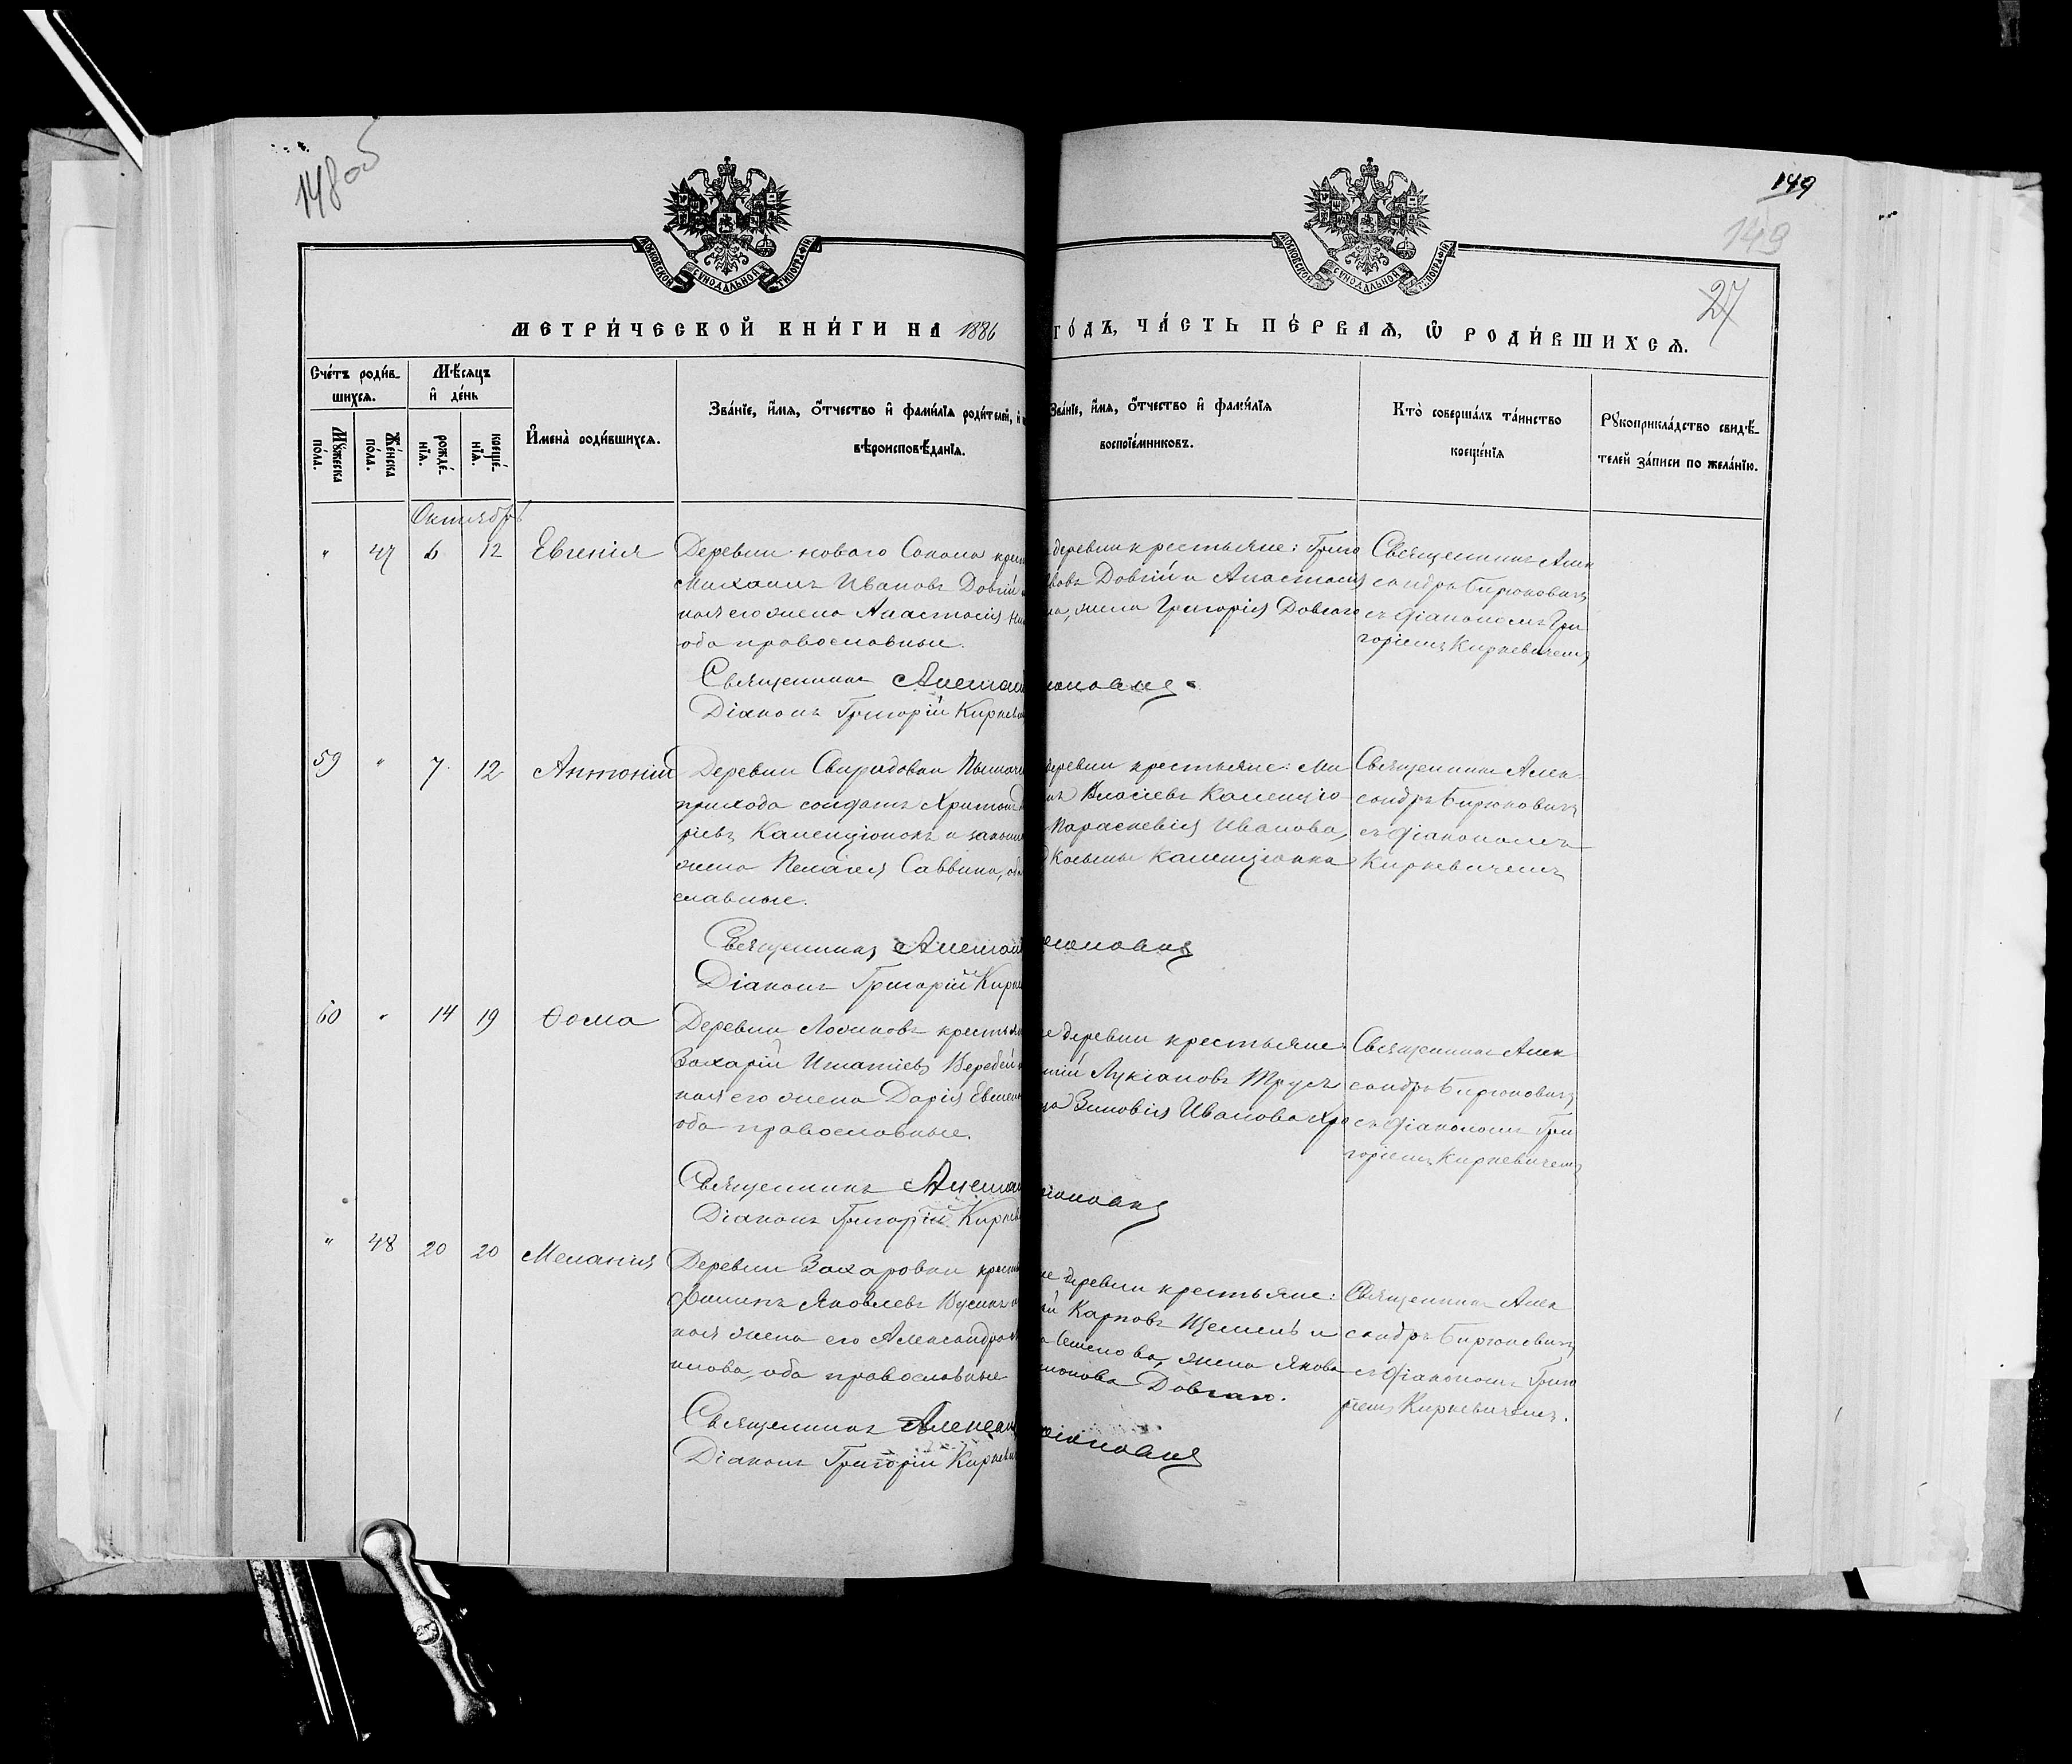 148 об
149
149
27
МОСКОВСКОЙ СѴНОДАЛЬНОЙ ТИПОГРАФІИ
МОСКОВСКОЙ СѴНОДАЛЬНОЙ ТИПОГРАФІИ
МЕТРИ́ЧЕСКОЙ КНИ́ГИ НА 1886
ГО́ДЪ, ЧА́СТЬ ПЕ́РВАѦ, Ѽ РОДИ́ВШИХСѦ.
Сче́тъ роди́в-
шихсѧ.
Мꙋ́жеска
по́ла.
Же́нска
по́ла.
Мѣ́сѧцъ
и҆ де́нь
рожде́-
нїѧ.
креще́-
нїѧ.
И҆мена̀ роди́вшихсѧ.
Зва́нїе, и҆́мѧ, о҆́тчество и҆ фами́лїѧ роди́телей, и҆
вѣроисповѣ́данїѧ.
Зва́нїе, и҆́мѧ, о҆́тчество и҆ фами́лїѧ
воспрїе́мниковъ.
Кто̀ соверша́лъ та́инство
креще́нїѧ
Рꙋкоприкла́дство свидѣ́-
телей за́писи по жела́нїю.
Октябрь
" 47 6 12 Евгенія
Деревни нового Сокола крест
Михаилъ Ивановъ Довгій и
ная его жена Анастасія Ни
оба православные.
Священникъ Алексан
Діаконъ Григорій Киркев
деревни крестьяне: Григо
Довгій и Анастасія
на, жена Григорія Довгаго
юковичъ
Священникъ Алек
сандръ Бирюковичъ
съ діакономъ Гри
горіемъ Киркевичемъ
59 " 7 12 Антоній
Деревни Свиридовки
прихода солдатъ Харитонъ
ріевъ Каленціонокъ и законн
жена Пелагія Саввина, об
славные.
Священникъ Алексан
Діаконъ Григорій Кирк
деревни крестьяне: Ми
Власіевъ Каленціо
Параскевія Иванова,
Косьмы Каленціонка
юковичъ
Священникъ Алек
сандръ Бирюковичъ
съ діакономъ
Киркевичемъ
60 " 14 19 Ѳома
Деревни крестьян
Захарій Игнатіевъ Веребей и
ная его жена Дарія
оба православные.
Священникъ Алексан
Діаконъ Григорій Кирке
же деревни крестьяне:
Лукіановъ Трусъ
Зиновія Иванова
юковичъ
Священникъ Алек
сандръ Бирюковичъ
съ діакономъ Гри
горіемъ Киркевичемъ
" 48 20 20 Меланія
Деревни Захаровки крест
Филипъ Яковлевъ
ная жена его Александра
нова, оба православные
Священникъ Алексан
Діаконъ Григорій Киркеви
же деревни крестьяне:
Карповъ и
Семенова, жена Якова
Довгаго.
юковичъ
Священникъ Алек
сандръ Бирюковичъ
съ діакономъ Григо
ріемъ Киркевичемъ.